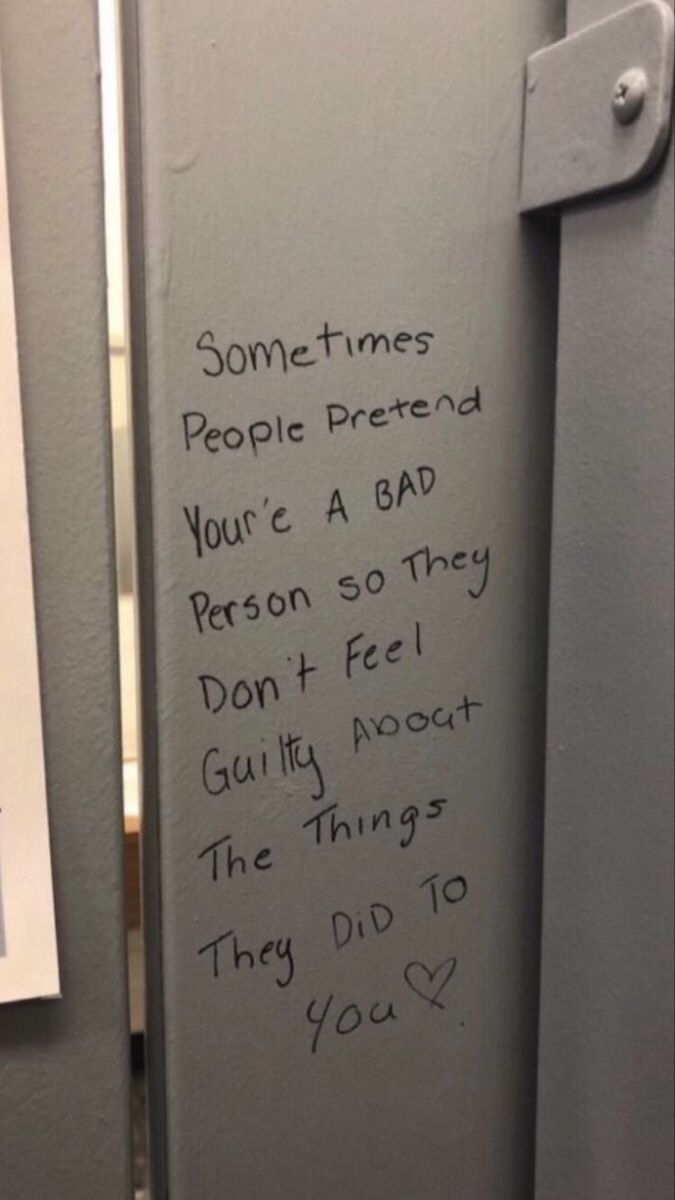 Sometimes
People Pretend
Your'e A BAD
Person so They
Don't Feel
Guilty About
The Things
They DiD To
You♡.